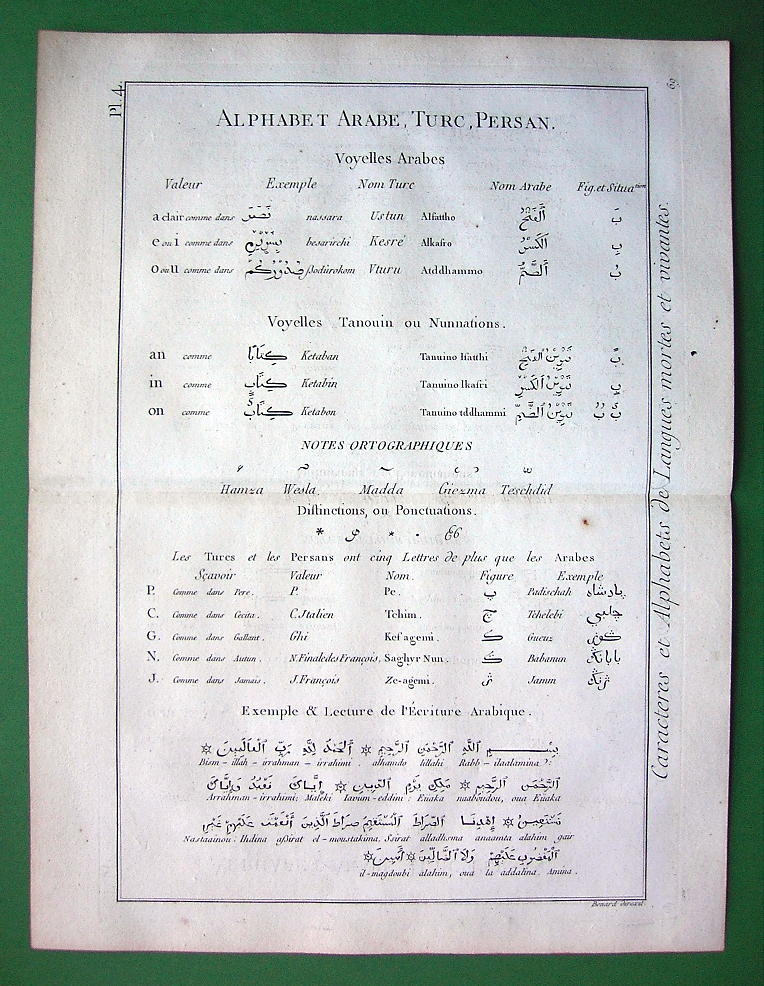 Pl. 4.
69
ALPHABET ARABE, TURC, PERSAN.
Voyelles Arabes
Valeur Exemple Nom Turc Nom Arabe Fig. et Situation
a clair comme dans نَصَرَ nassara Ustun Alfattho اَلْفَتْحُ بَ
e ou i comme dans besarirchi Kesré Alkasro اَلْكَسْرُ بِ
o ou u comme dans صُدُورُكُمْ ßodùrokom Vturu Atddhammo اَلضَّمُّ بُ
Voyelles Tanouin ou Nunnations.
an comme كِتَابًا Ketaban Tanuino lfatthi تَنْوِينُ الْفَتْحِ بً
in comme كِتَابٍ Ketabin Tanuino lkasri تَنْوِينُ الْكَسْرِ بٍ
on comme كِتَابٌ Ketabon Tanuino tddhammi تَنْوِينُ الضَّمِّ بٌ
NOTES ORTOGRAPHIQUES
Hamza Wesla. Madda Giezma Teschdid
Distinctions, ou Ponctuations.
Les Turcs et les Persans ont cinq Lettres de plus que les Arabes
Sçavoir Valeur Nom. Figure Exemple
P. Comme dans Pere. P. Pe. پ Padischah پادشاه
C. Comme dans Cecita. C. Italien Tchim. چ Tchelebi چلبي
G. Comme dans Gallant. Ghi Kef agemi. Gueuz
N. Comme dans Autun. N. Finale des François. Saghyr Nun. Babanun
J. Comme dans Jamais. J. François Ze-agemi. ژ Jamm
Exemple & Lecture de l'Ecriture Arabique.
بِسْمِ اللّٰهِ الرَّحْمٰنِ الرَّحِيمِ ✡ اَلْحَمْدُ لِلّٰهِ رَبِّ الْعَالَمِينَ ✡
Bism - illah - irrahman - irrahimi. alhamdo lillahi Rabb - ilaalamina
اَلرَّحْمٰنِ الرَّحِيمِ ✡ مَلِكِ يَوْمِ الدِّينِ ✡ إِيَّاكَ نَعْبُدُ وَإِيَّاكَ
Arrahman - irrahimi; Maleki Iaoum - eddini: Eiiaka naaboudou, oua Eiiaka
نَسْتَعِينُ ✡ إِهْدِنَا الصِّرَاطَ الْمُسْتَقِيمَ صِرَاطَ الَّذِينَ أَنْعَمْتَ عَلَيْهِمْ غَيْرِ
Nastaainou: Ihdina aßirat el - moustakima, Ssirat alladhsma anaamta alahim gair
الْمَغْضُوبِ عَلَيْهِمْ وَلَا الضَّالِّينَ ✡ أَمِينَ ✡
il-magdoubi alahim, oua la addalina. Amina.
Benard direxit.
Caracteres et Alphabets de Langues mortes et vivantes.